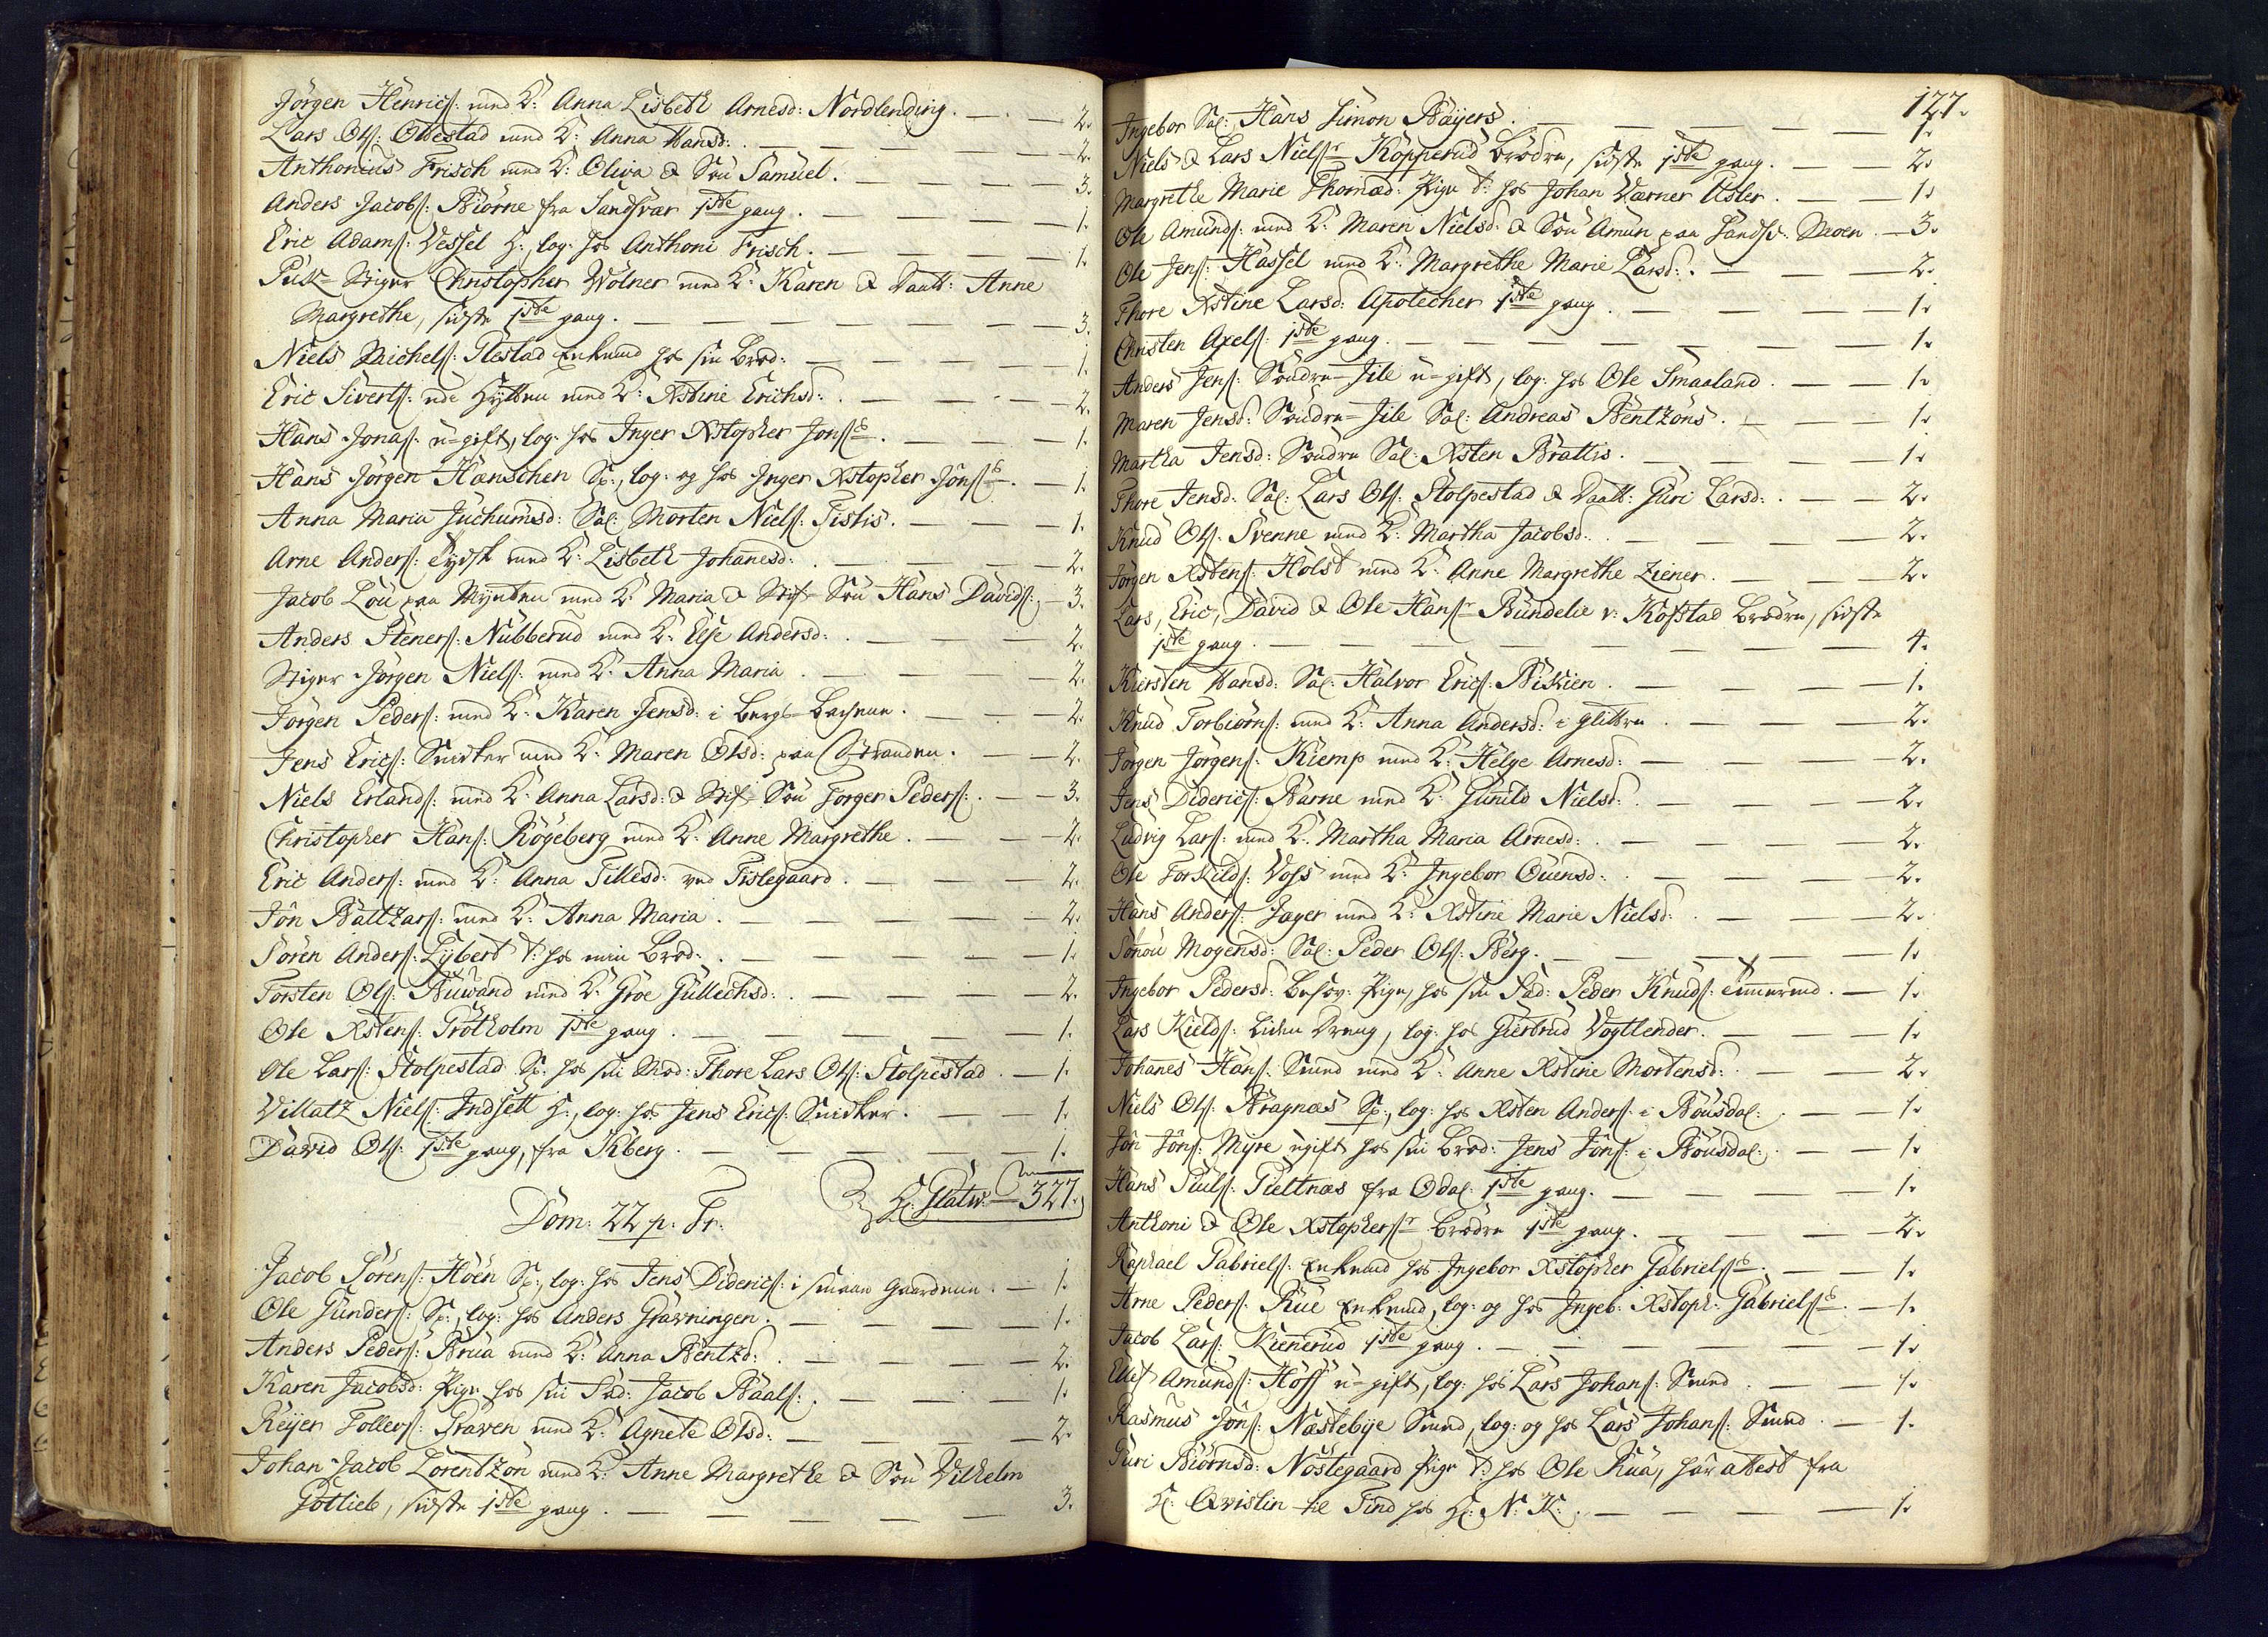 Jörgen Henrics: med K: Anna Lisbeth Arnesd: Nordlending. — 2.
Lars Ols: Ollestad med K: Anna Hansd: — 2.
Anthonius Frisch med K: Oliva & Søn Samuel. — 3.
Anders Jacobs: Biörne fra Sandsvær 1ste gang. — 1.
Eric Adams: Vessel H: log: hos Anthoni Frisch. — 1.
Puk-Stiger Christopher Wölner med K: Karen & Daatt: Anne
Margrethe, sidste 1ste gang. — 3.
Niels Michels: Glestad Enkemd hos sin Brod: — 1.
Eric Siverts: ved Hytten med K: Xstine Erichsd: — 2.
Hans Jonas: u-gift, log: hos Inger Xstopher Jonses. — 1.
Hans Jörgen Hænschen S:, log: og hos Inger Xstopher Jönses. — 1.
Anna Maria Juchumsd: Sal: Morten Niels: Tislis. — 1.
Arne Anders: Tydsk med K: Lisbeth Johanesd: — 2.
Jacob Lou paa Mynten med K: Maria & Stif-Søn Hans Davids: — 3.
Anders Steners: Nubberud med K: Else Andersd: — 2.
Stiger Jörgen Niels: med K: Anna Maria. — 2.
Jörgen Peders: med K: Karen Jensd: i Bergs-Bachene. — 2.
Jens Erics: Snidker med K: Maren Olsd: paa Stranden. — 2.
Niels Erlands: med K: Anna Larsd: & Stif-Søn Torger Peders: — 3.
Christopher Hans: Rögeberg med K: Anne Margrethe. — 2.
Eric Anders: med K: Anna Tillesd: ved Tislegaard. — 2.
Jön Baltzars: med K: Anna Maria. — 2.
Sören Anders: Lybert T: hos min Brod: — 1.
Torsten Ols: Buwand med K: Groe Gullechsd: — 2.
Ole Xstens: Grötholm 1ste gang. — 1.
Ole Lars: Stolpestad S: hos sin Mod: Thore Lars Ols: Stolpestad. — 1.
Villatz Niels: Indsett H:, log: hos Jens Erics: Snidker. — 1.
David Ols: 1ste gang, fra Kberg. — 1.
H: Flatw: — 327.
Dom: 22 p: Tr:
Jacob Sörens: Höen S:, log: hos Jens Diderics: i smaa Gaardene. — 1.
Ole Gunders: S:, log: hos Anders Gravningen. — 1.
Anders Peders: Brua med K: Anna Bentzd: — 2.
Karen Jacobsd: Pige hos sin Fad: Jacob Baals: — 1.
Reyer Tollevs: Graven med K: Agnete Olsd: — 2.
Johan Jacob Lorentzön med K: Anne Margrethe & Søn Vilhelm
Gotlieb, sidste 1ste gang. — 3.
127.
Ingebor Sal: Hans Simon Bayers. — 1.
Niels & Lars Nielsr Kopperud Brødre, sidste 1ste gang. — 2.
Margrethe Marie Thomæd: Pige T: hos Johan Værner Asler. — 1.
Ole Amunds: med K: Maren Nielsd: & Søn Amun paa Sandsv: Moen. — 3.
Ole Jens: Hassel med K: Margrethe Marie Larsd: — 2.
Thore Xstine Larsd: Apotecher 1ste gang. — 1.
Christen Axels: 1ste gang. — 1.
Anders Jens: Søndre-Jile u-gift, log: hos Ole Smaaland. — 1.
Maren Jensd: Søndre-Jile Sal: Andreas Bentzöns. — 1.
Martha Jensd: Søndre Sal: Xsten Brattis. — 1.
Thore Jensd: Sal: Lars Ols: Stolpestad & Daatt: Guri Larsd: — 2.
Knud Ols: Svenne med K: Martha Jacobsd: — 2.
Jörgen Xstens: Holst med K: Anne Margrethe Ziener. — 2.
Lars, Eric, David & Ole Hansr Bundelie v: Kofstad Brødre, sidste
1ste gang. — 4.
Kiersten Hansd: Sal: Halvor Erics: Bikien. — 1.
Knud Torbiörns: med K: Anna Andersd: i Glittre. — 2.
Jörgen Jörgens: Kiemp med K: Helge Arnesd: — 2.
Jens Diderics: Barne med K: Gunild Nielsd: — 2.
Ludvig Lars: med K: Martha Maria Arnesd: — 2.
Ole Torkilds: Voss med K: Ingebor Ouensd: — 2.
Hans Anders: Jæger med K: Xstine Marie Nielsd: — 2.
Sönou Mogensd: Sal: Peder Ols: Berg. — 1.
Ingebor Pedersd: Besöv: Pige, hos sin Fad: Peder Knuds: Emmerud. — 1.
Lars Kields: Liden Dreng, log: hos Giertrud Vogtlender. — 1.
Johanes Hans: Smed med K: Anne Xstine Mortensd: — 2.
Niels Ols: Bragnæs S:, log: hos Xsten Anders: i Bousdal: — 1.
Jön Jöns: Myre ugift hos sin Brod: Jens Jöns: i Bousdal: — 1.
Hans Pouls: Pieltnæs fra Odal: 1ste gang. — 1.
Anthoni & Ole Xstophersr Brødre 1ste gang. — 2.
Raphael Gabriels: Enkemd hos Ingebor Xstopher Gabrielses. — 1.
Arne Peders: Rue Enkemd, log: og hos Ingeb: Xstoph: Gabrielses. — 1.
Jacob Lars: Kiennerud 1ste gang. — 1.
Elef Amunds: Hoff u-gift, log: hos Lars Johans: Smed. — 1.
Rasmus Jöns: Næstebye Smed, log: og hos Lars Johans: Smed. — 1.
Guri Biörnsd: Nöstegaard Pige T: hos Ole Rua, har attest fra
H: Qvislin til Tind hos H: N: K: — 1.